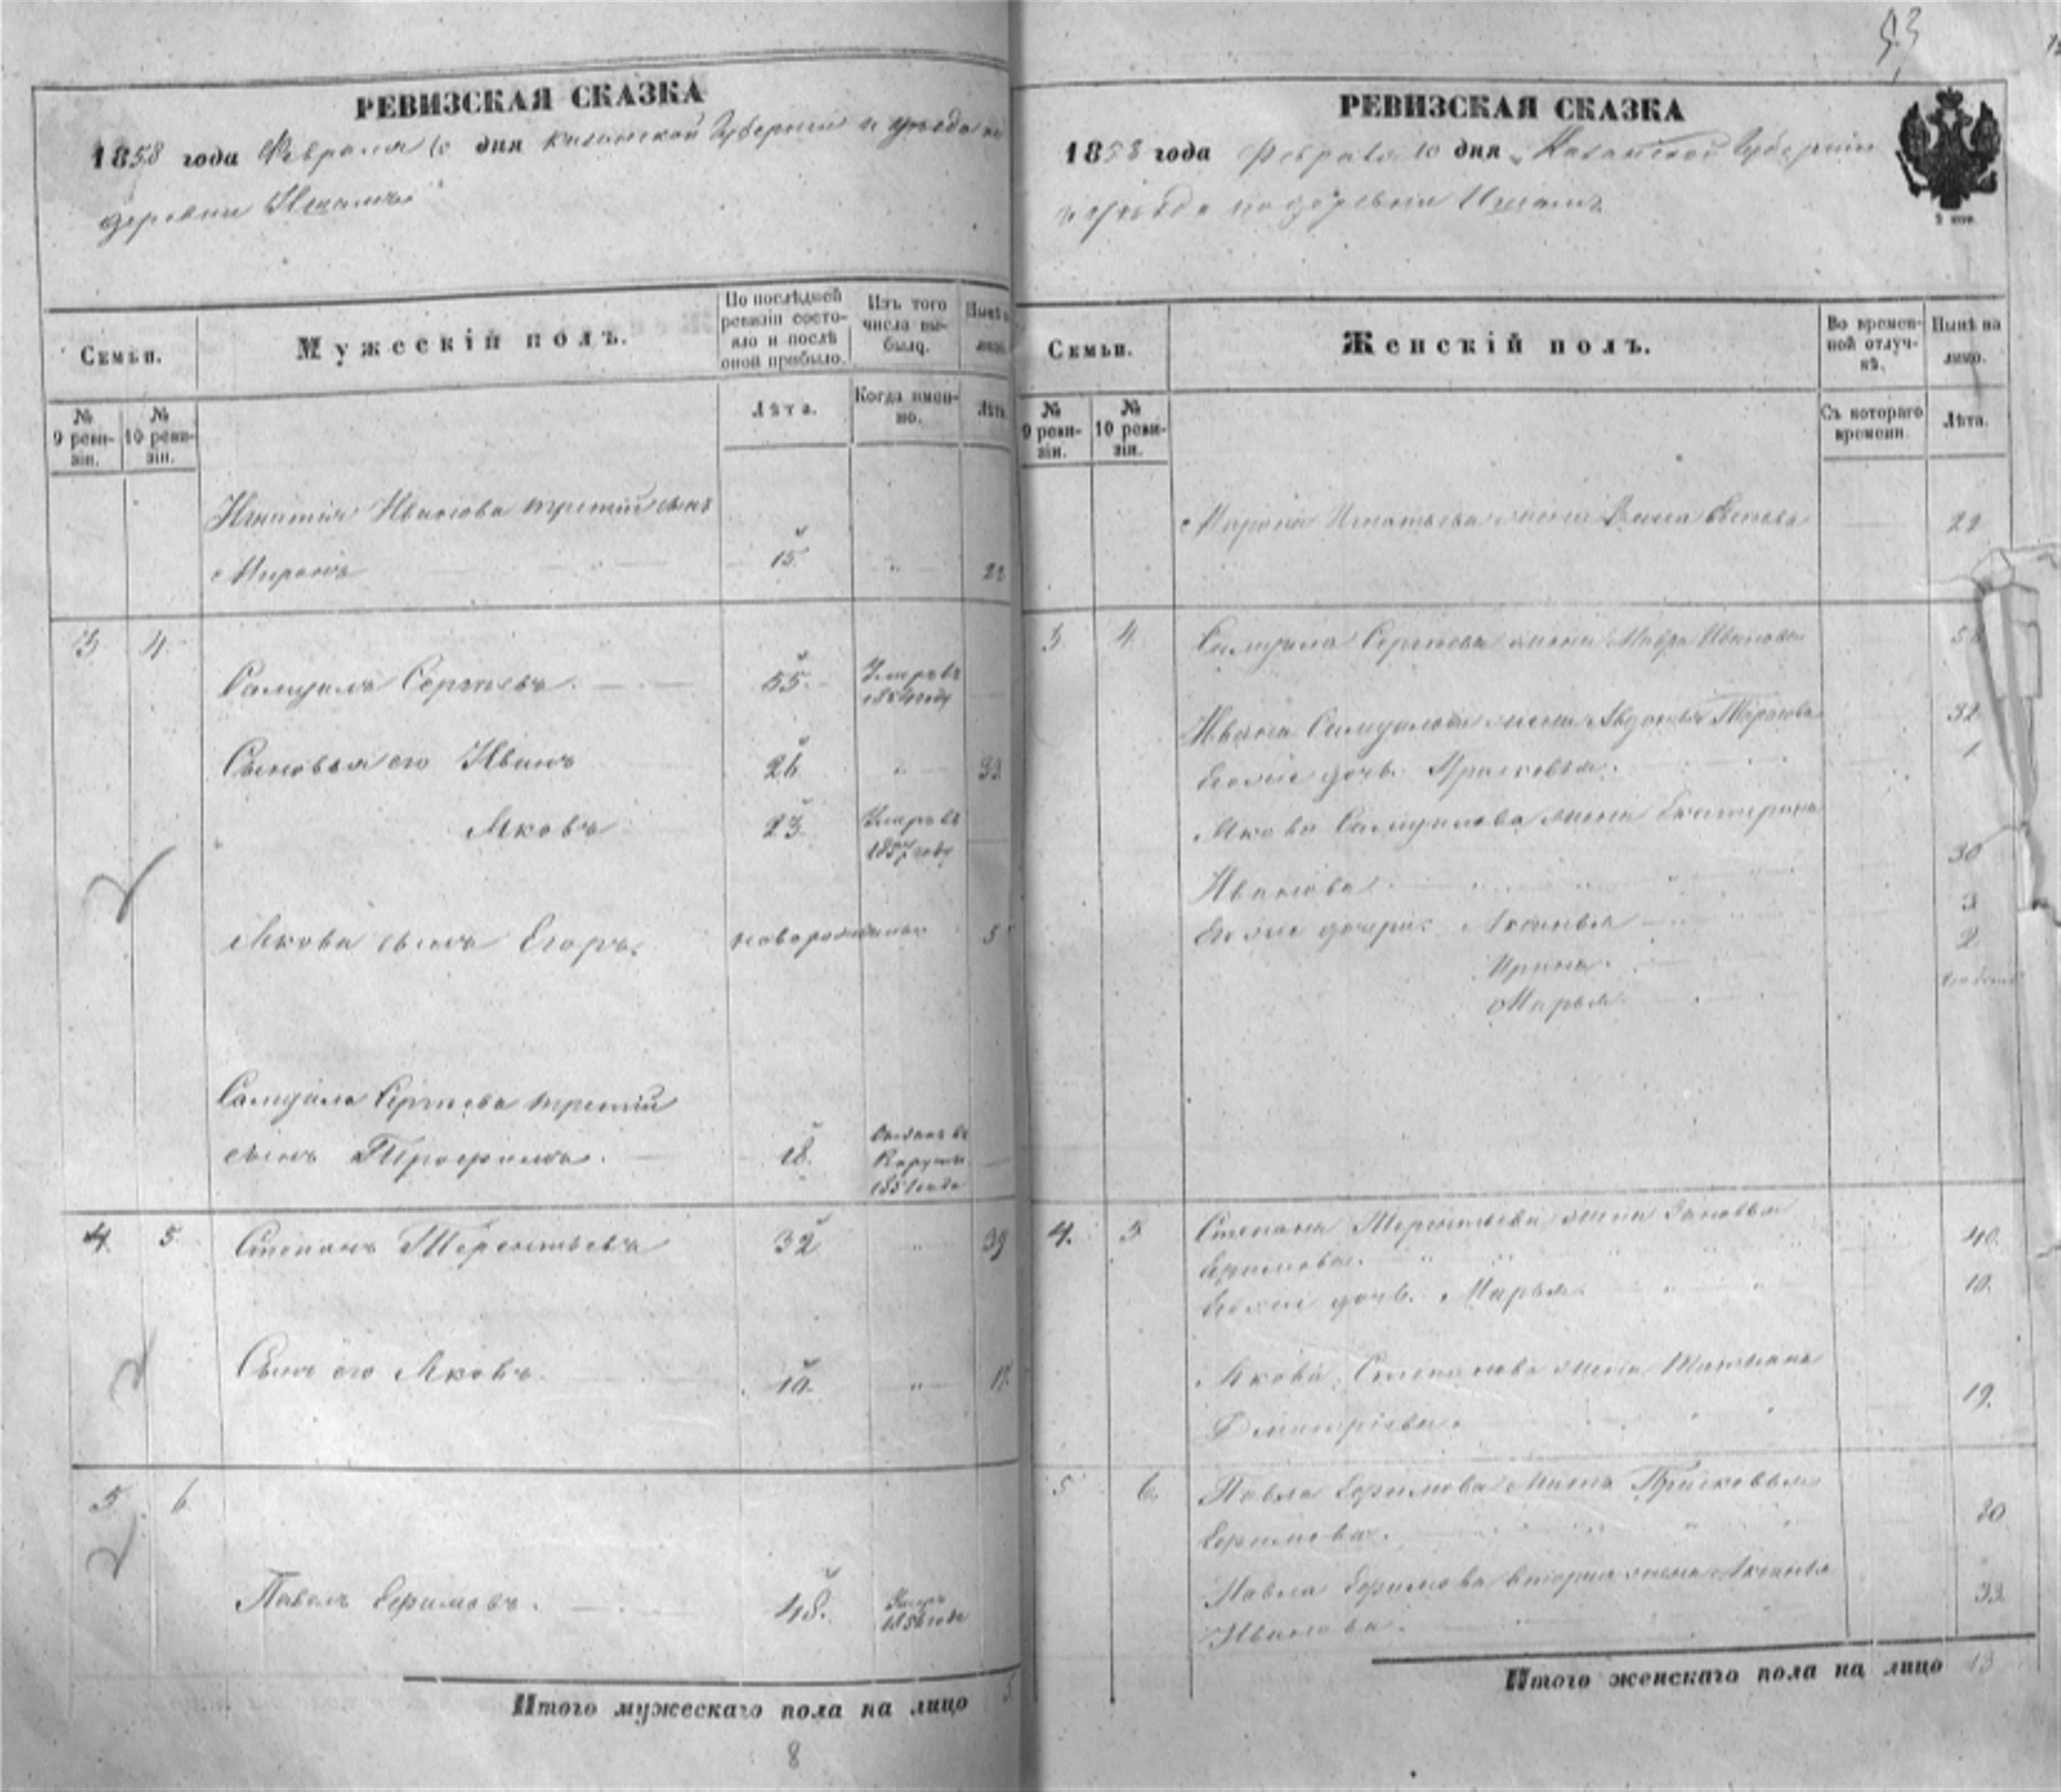 93
РЕВИЗСКАЯ СКАЗКА
1858 года Февраля 10 дня Казанской Губернии и уезда по
деревни
Семьи.
Мужескій полъ.
По послѣдней ревизіи состо-
яло и послѣ
оной прибыло.
Изъ того
числа вы-
было.
Нынѣ на
лицо.
№
9 реви-
зіи.
№
10 реви-
зіи.
Лѣта.
Когда имен-
но.
Лѣта.
Игнатія Иванова третій сынъ
Миронъ 15 " 22
3 4
Самуилъ Сергѣевъ. 55. Умеръ въ
1854 году
Сыновья его Иванъ 26 " 33
Яковъ 23. Умеръ въ
1857 году
Якова сынъ Егоръ. новорожденный 5
Самуила Сергѣева третій
сынъ Трофимъ. 18. Отданъ въ
Рекруты
1854 года
4. 5 Степанъ Терентьевъ 32 " 39
Сынъ его Яковъ. 10. " 17
5. 6.
Павелъ Ефимовъ. 48. Умеръ
1856 года
Итого мужескаго пола на лицо 5.
8
РЕВИЗСКАЯ СКАЗКА
1858 года Февраля 10 дня Казанской Губерніи
и уѣзда по деревни
2 коп.
Семьи.
Женскій полъ.
Во времен-
ной отлуч-
кѣ.
Нынѣ на
лицо.
№
9 реви-
зіи.
№
10 реви-
зіи.
Съ котораго
времени.
Лѣта.
Мирона Игнатьева жена 22
3 4 Самуила Сергѣева жена Мавра Иванова
Ивана Самуилова жена Авдотья Тарасова 32
Ихъ дочь Прасковья. 1
Якова Самуилова жена Екатерина
Иванова 30
дочери: Аксинья 3
Ирина. 2
Марья.
4. 5 Степана Терентьева жена Зиновья
Ефимова. 40.
дочь. Марья. 10.
Якова Степанова жена Татьяна
Дмитріева. 19.
5 6. Павла Ефимова Прасковья
Ефимова. 30
Павла Ефимова вторая жена Аксинья
Иванова. 33.
Итого женскаго пола на лицо 13